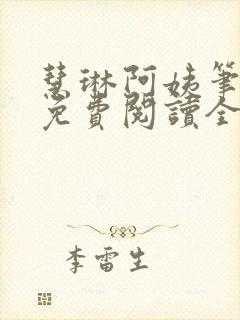 慧琳阿姨筆
免費閱讀全
李雷生